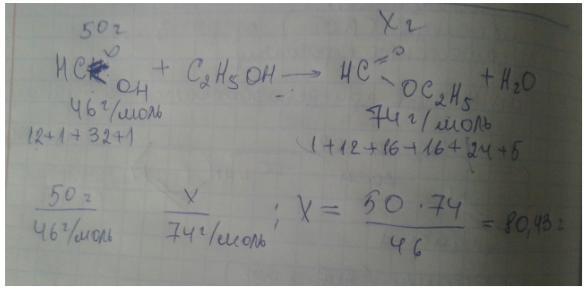 50г Xг
HC=O OH + C₂H₅OH → HC=O OC₂H₅ + H₂O
46г/моль 74г/моль
12+1+32+1 1+12+16+16+24+5
50г/46г/моль X/74г/моль ; X = 50·74/46 = 80,43г